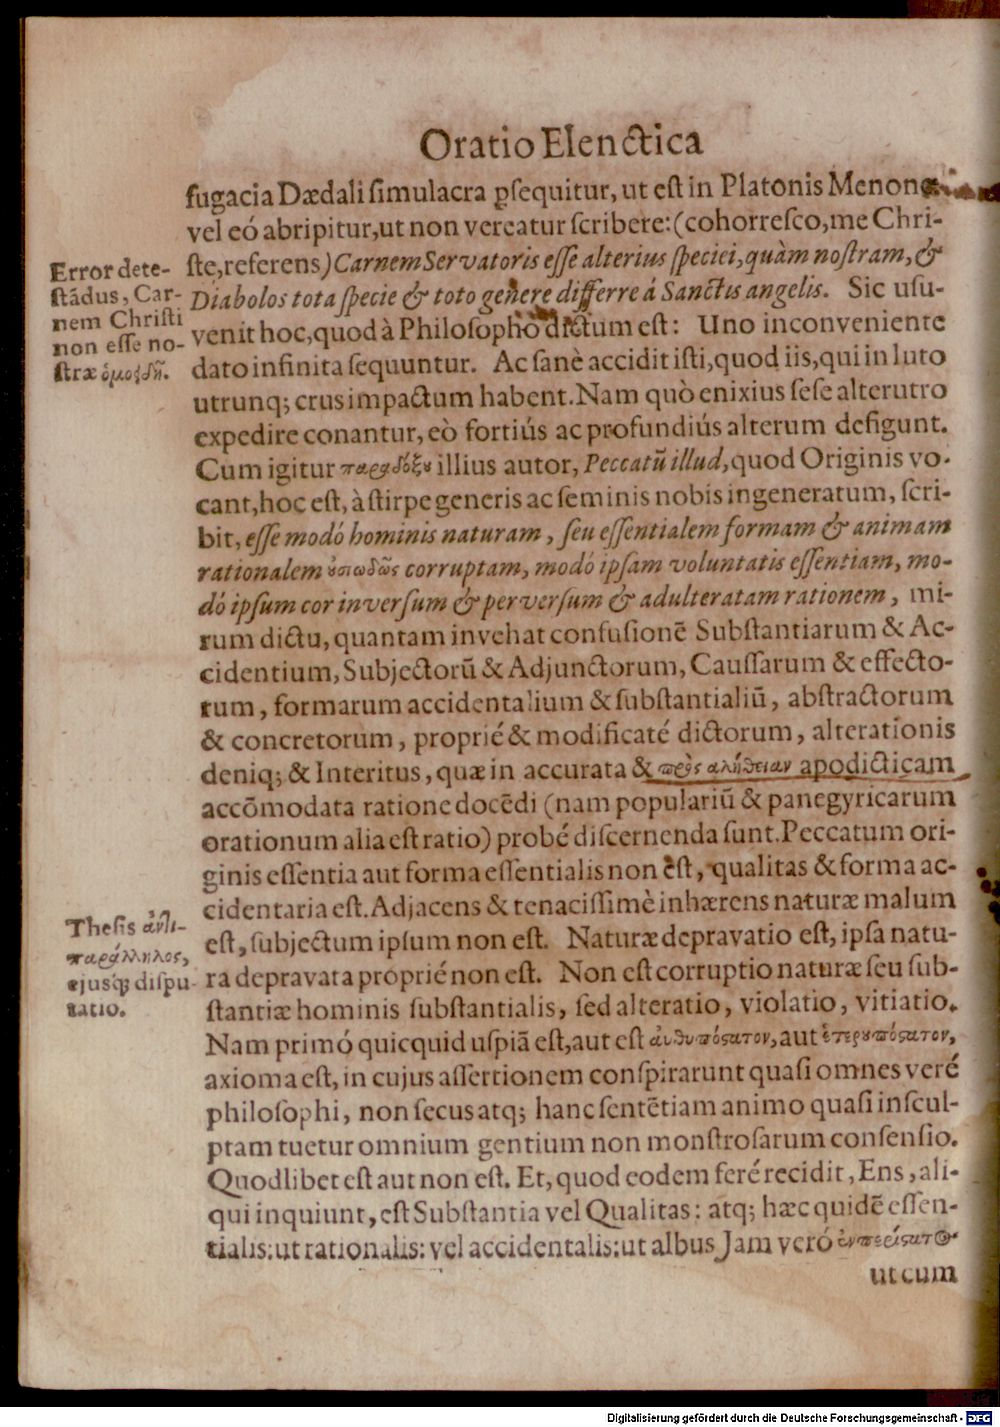 Oratio Elenctica
fugacia Dædali simulacra ꝑsequitur, ut est in Platonis Menone
vel eó abripitur, ut non vereatur scribere: (cohorresco, me Chri-
ste, referens) Carnem Servatoris esse alterius speciei, quàm nostram, &
Diabolos tota specie & toto genere differre á Sanctis angelis. Sic usu-
venit hoc, quod à Philosopho dictum est: Uno inconveniente
dato infinita sequuntur. Ac sanè accidit isti, quod iis, qui in luto
utrunq; crus impactum habent. Nam quò enixius sese alterutro
expedire conantur, eò fortiús ac profundiús alterum defigunt.
Cum igitur παραδόξου illius autor, Peccatũ illud, quod Originis vo-
cant, hoc est, à stirpe generis ac seminis nobis ingeneratum, scri-
bit, esse modó hominis naturam, seu essentialem formam & animam
rationalem οὐσιωδῶς corruptam, modó ipsam voluntatis essentiam, mo-
dó ipsum cor inversum & perversum & adulteratam rationem, mi-
rum dictu, quantam invehat confusionē Substantiarum & Ac-
cidentium, Subjectorũ & Adjunctorum, Caussarum & effecto-
rum, formarum accidentalium & substantialiũ, abstractorum
& concretorum, proprié & modificaté dictorum, alterationis
deniq; & Interitus, quæ in accurata & πρὸς ἀλήθειαν apodicticam
accōmodata ratione docēdi (nam populariũ & panegyricarum
orationum alia est ratio) probé discernenda sunt. Peccatum ori-
ginis essentia aut forma essentialis non est, qualitas & forma ac-
cidentaria est. Adjacens & tenacissimè inhærens naturæ malum
est, subjectum ipsum non est. Naturæ depravatio est, ipsa natu-
ra depravata proprié non est. Non est corruptio naturæ seu sub-
stantiæ hominis substantialis, sed alteratio, violatio, vitiatio.
Nam primó quicquid uspiā est, aut est αὐθυπόστατον, aut ἑτερουπόστατον,
axioma est, in cujus assertionem conspirarunt quasi omnes veré
philosophi, non secus atq; hanc sentētiam animo quasi inscul-
ptam tuetur omnium gentium non monstrosarum consensio.
Quodlibet est aut non est. Et, quod eodem feré recidit, Ens, ali-
qui inquiunt, est Substantia vel Qualitas: atq; hæc quidē essen-
tialis: ut rationalis: vel accidentalis: ut albus Jam veró
ut cum
Error dete-
stādus, Car-
nem Christi
non esse no-
stræ
Thesis ἀντι-
παράλληλος,
ejusq; dispu-
tatio.
Digitalisierung gefördert durch die Deutsche Forschungsgemeinschaft - DFG